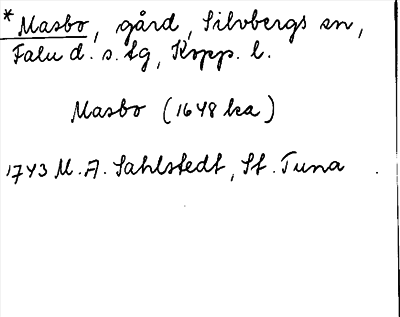 * Masbo, gård, Silvbergs sn,
Falu d. s. tg, Kopp. l.
Masbo (1648 ka)
1743 M. A. Sahlstedt, St. Tuna